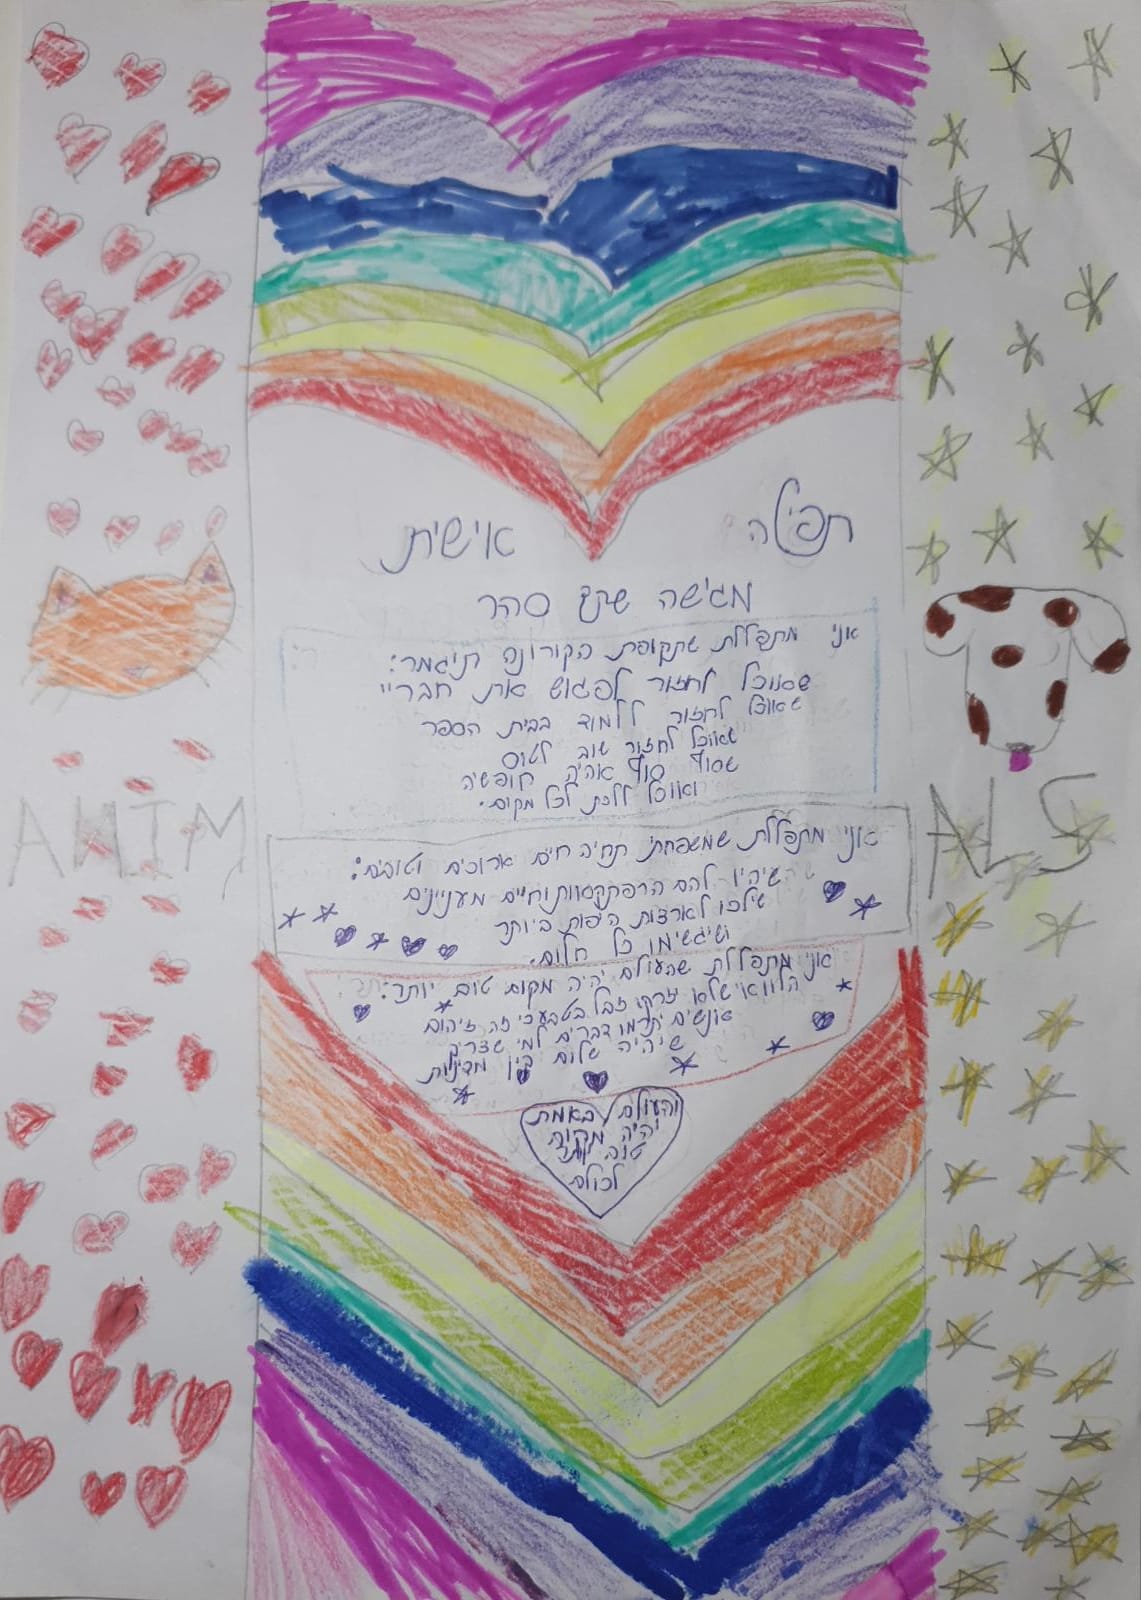 תפילה אישית
מגישה שקד סהר
אני מתפללת שתקופת הקורונה תיגמר:
שאוכל לחזור לפגוש את חבריי
שאוכל לחזור ללמוד בבית הספר
שאוכל לחזור שוב לטוס
שסוף סוף אהיה חופשיה
ואוכל ללכת לכל מקום.
אני מתפללת שמשפחתי תחיה חיים ארוכים וטובים:
שיהיו להם הרפתקאות וחיים מעניינים
שילכו לארצות היפות ביותר
ושיגשימו כל חלום.
אני מתפללת שהעולם יהיה מקום טוב יותר:
הלוואי שלא יזרקו זבל בטבע כי זה זיהום
אנשים יתרמו דברים למי שצריך
שיהיה שלום בין מדינות
והעולם באמת
יהיה מקום
טוב יותר
לכולם
ANIMALS